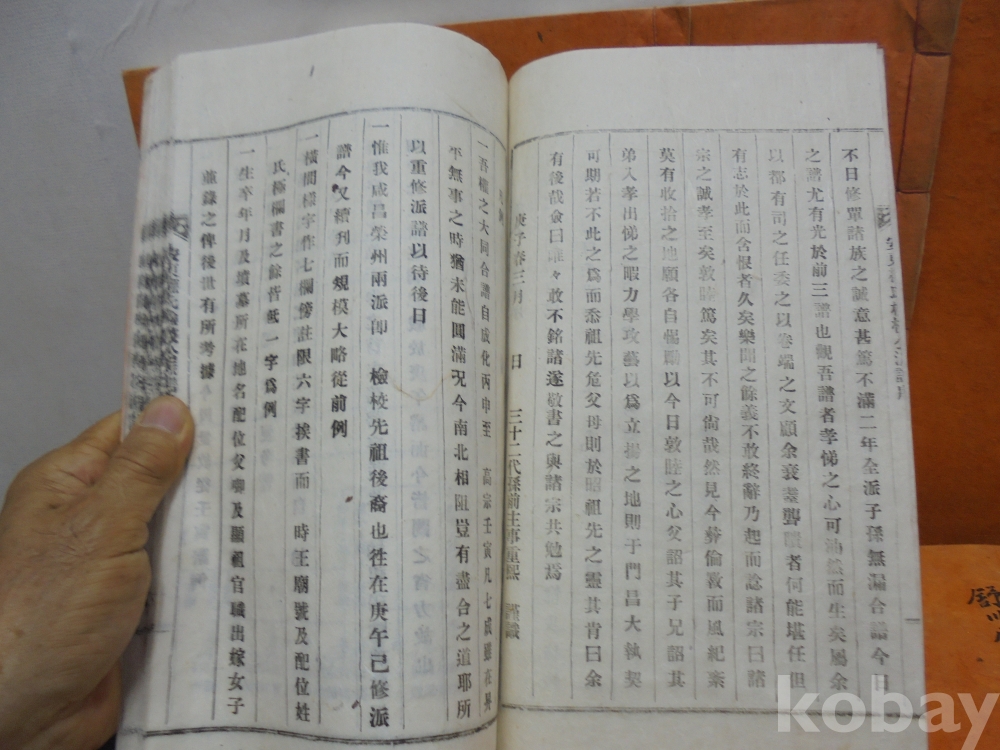 不日修單諸族之誠意甚篤不滿二年全派子孫無漏合譜今
之譜尤有光於前三譜也觀吾譜者孝悌之心可油然而生矣屬余
以都有司之任委之以卷端之文顧余衰耄聾聵者何能堪任但
有志於此而含恨者久矣樂聞之餘義不敢終辭乃起而諗諸宗曰諸
宗之誠孝至矣敦睦篤矣其不可尚哉然見今彛倫斁而風紀紊
莫有收拾之地願各自惕勵以今日敦睦之心父詔其子兄詔其
弟入孝出悌之暇力學攻藝以爲立揚之地則于門昌大執契
可期若不此之爲而忝祖先危父母則於昭祖先之靈其肯曰余
有後哉僉曰唯々敢不銘諸遂敬書之與諸宗共勉焉
庚子春三月 日 三十二代孫前主事重熙 謹識
一吾權之大同合譜自成化丙申至 高宗壬寅凡七成雖在昇
平無事之時猶未能圓滿況今南北相阻豈有盡合之道耶所
以重修派譜以待後日
一惟我咸昌榮州兩派卽 檢校先祖後裔也徃在庚午已修派
譜今又續刊而規模大略從前例
一橫間樣字作七欄傍註限六字挨書而 時王廟號及配位姓
氏極欄書之餘皆低一字爲例
一生卒年月及墳墓所在地名配位父〻及顯祖官職出嫁女子
並錄之俾後世有所考據
kobay